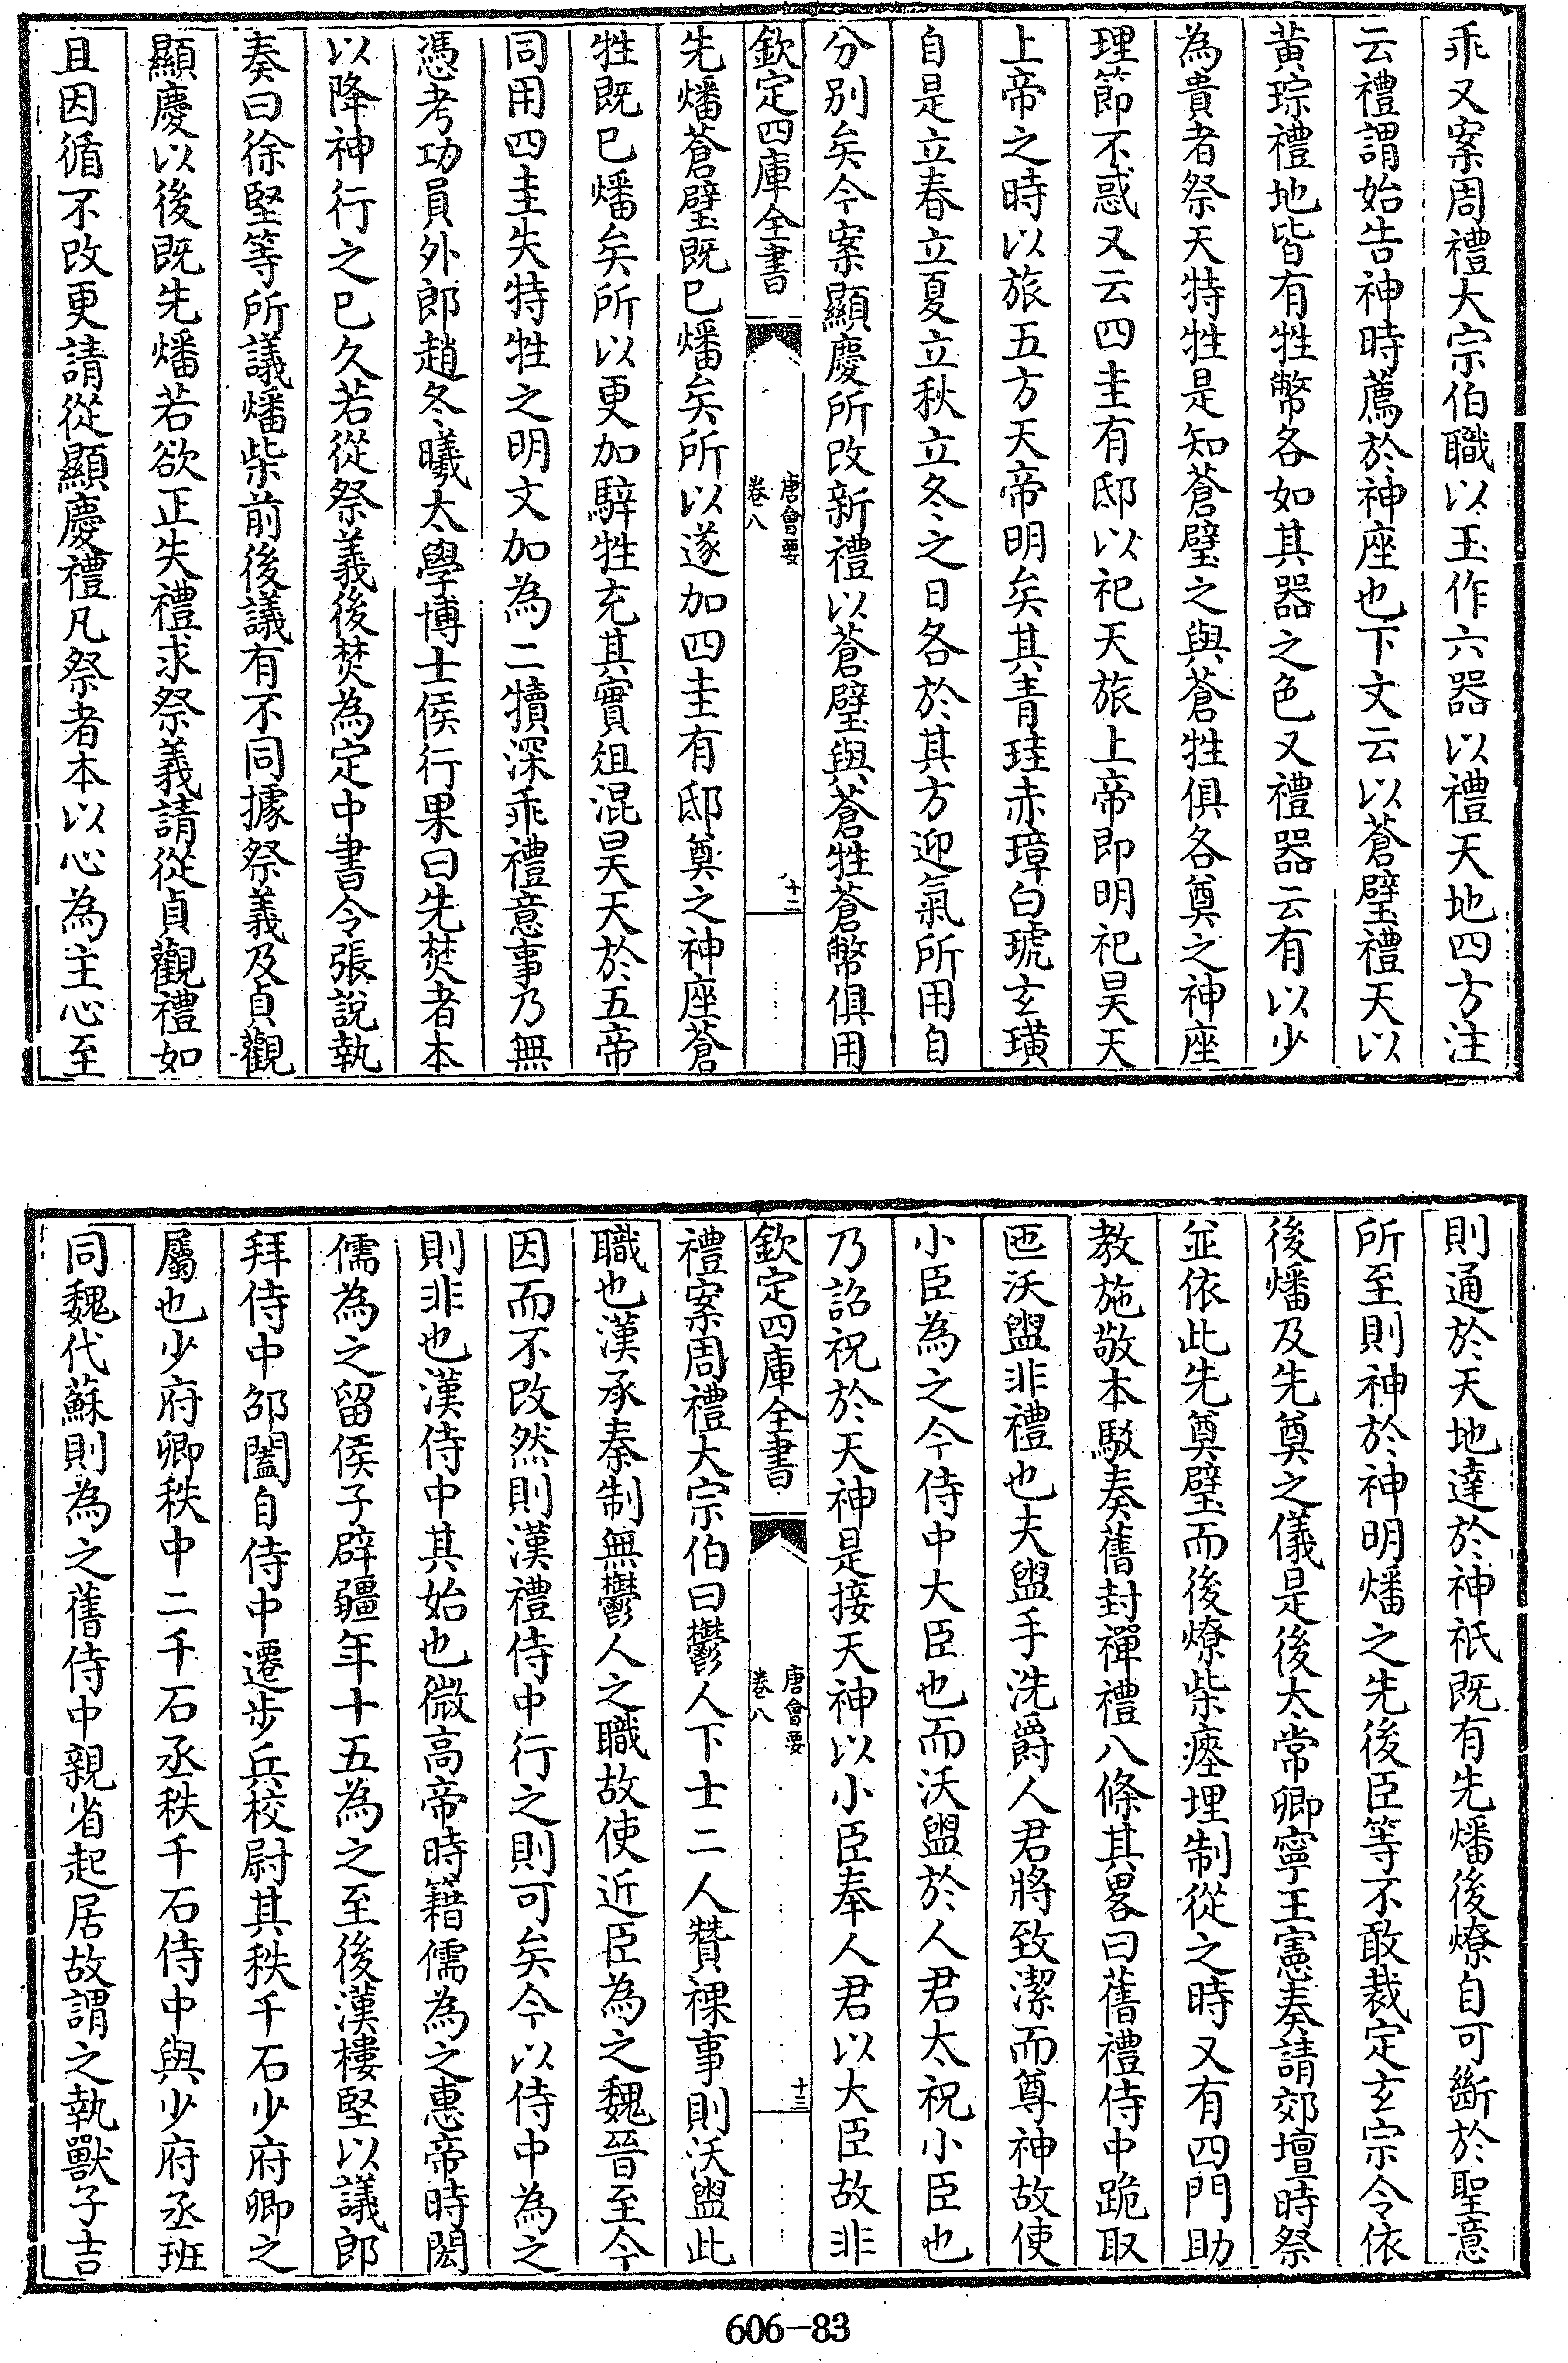 乖又案周禮大宗伯職以玉作六器以禮天地四方注
云禮謂始告神時薦於神座也下文云以蒼璧禮天以
黃琮禮地皆有牲幣各如其器之色又禮器云有以少
為貴者祭天特牲是知蒼璧之與蒼牲俱各奠之神座
理節不惑又云四圭有邸以祀天旅上帝即明祀昊天
上帝之時以旅五方天帝明矣其青珪赤璋白琥玄璜
自是立春立夏立秋立冬之日各於其方迎氣所用自
分別矣今案顯慶所改新禮以蒼璧與蒼牲蒼幣俱用
欽定四庫全書
唐會要
卷八
十二
先燔蒼璧既已燔矣所以遂加四圭有邸奠之神座蒼
牲既已燔矣所以更加騂牲充其實俎混昊天於五帝
同用四圭失特牲之明文加為二犢深乖禮意事乃無
憑考功員外郎趙冬曦太學博士侯行果曰先焚者本
以降神行之已久若從祭義後焚為定中書令張說執
奏曰徐堅等所議燔柴前後議有不同據祭義及貞觀
顯慶以後既先燔若欲正失禮求祭義請從貞觀禮如
且因循不改更請從顯慶禮凡祭者本以心為主心至
則通於天地達於神祇既有先燔後燎自可斷於聖意
所至則神於神明燔之先後臣等不敢裁定玄宗令依
後燔及先奠之儀是後太常卿寧王憲奏請郊壇時祭
並依此先奠璧而後燎柴瘞埋制從之時又有四門助
教施敬本駁奏舊封禪禮八條其畧曰舊禮侍中跪取
匜沃盥非禮也夫盥手洗爵人君將致潔而尊神故使
小臣為之今侍中大臣也而沃盥於人君太祝小臣也
乃詔祝於天神是接天神以小臣奉人君以大臣故非
欽定四庫全書
唐會要
卷八
十三
禮案周禮大宗伯曰鬱人下士二人贊祼事則沃盥此
職也漢承秦制無鬱人之職故使近臣為之魏晉至今
因而不改然則漢禮侍中行之則可矣今以侍中為之
則非也漢侍中其始也微高帝時籍儒為之惠帝時閎
儒為之留侯子辟疆年十五為之至後漢樓堅以議郎
拜侍中邵闔自侍中遷步兵校尉其秩千石少府卿之
屬也少府卿秩中二千石丞秩千石侍中與少府丞班
同魏代蘇則為之舊侍中親省起居故謂之執獸子吉
606-83